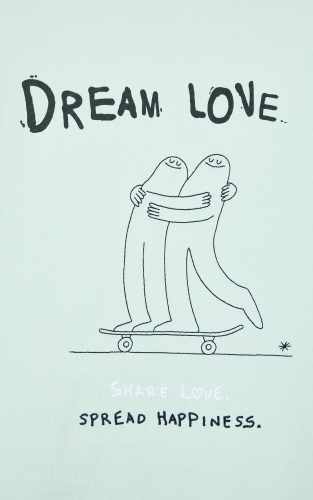 DREAM LOVE
SHARE LOVE.
SPREAD HAPPINESS.